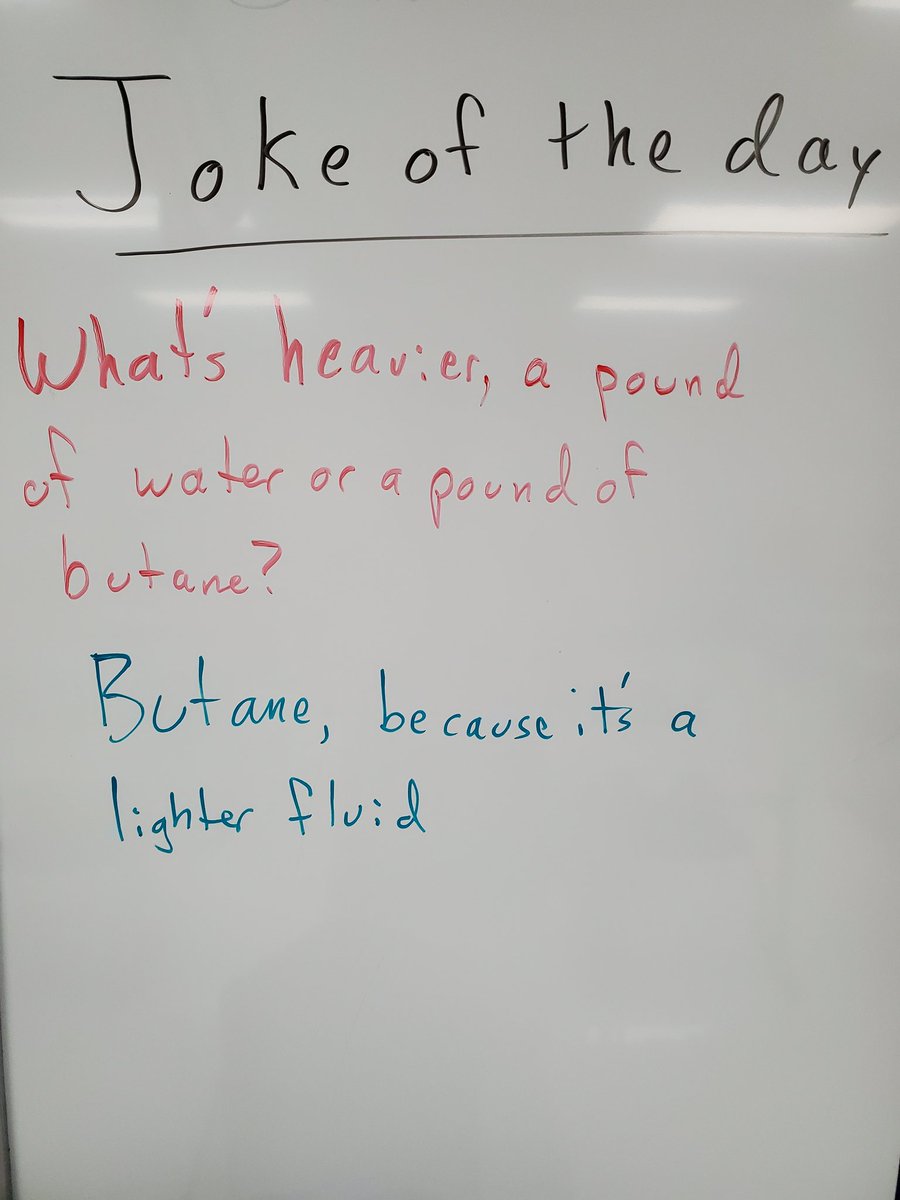 Joke of the day
What's heavier, a pound
of water or a pound of
butane?
Butane, because it's a
lighter fluid